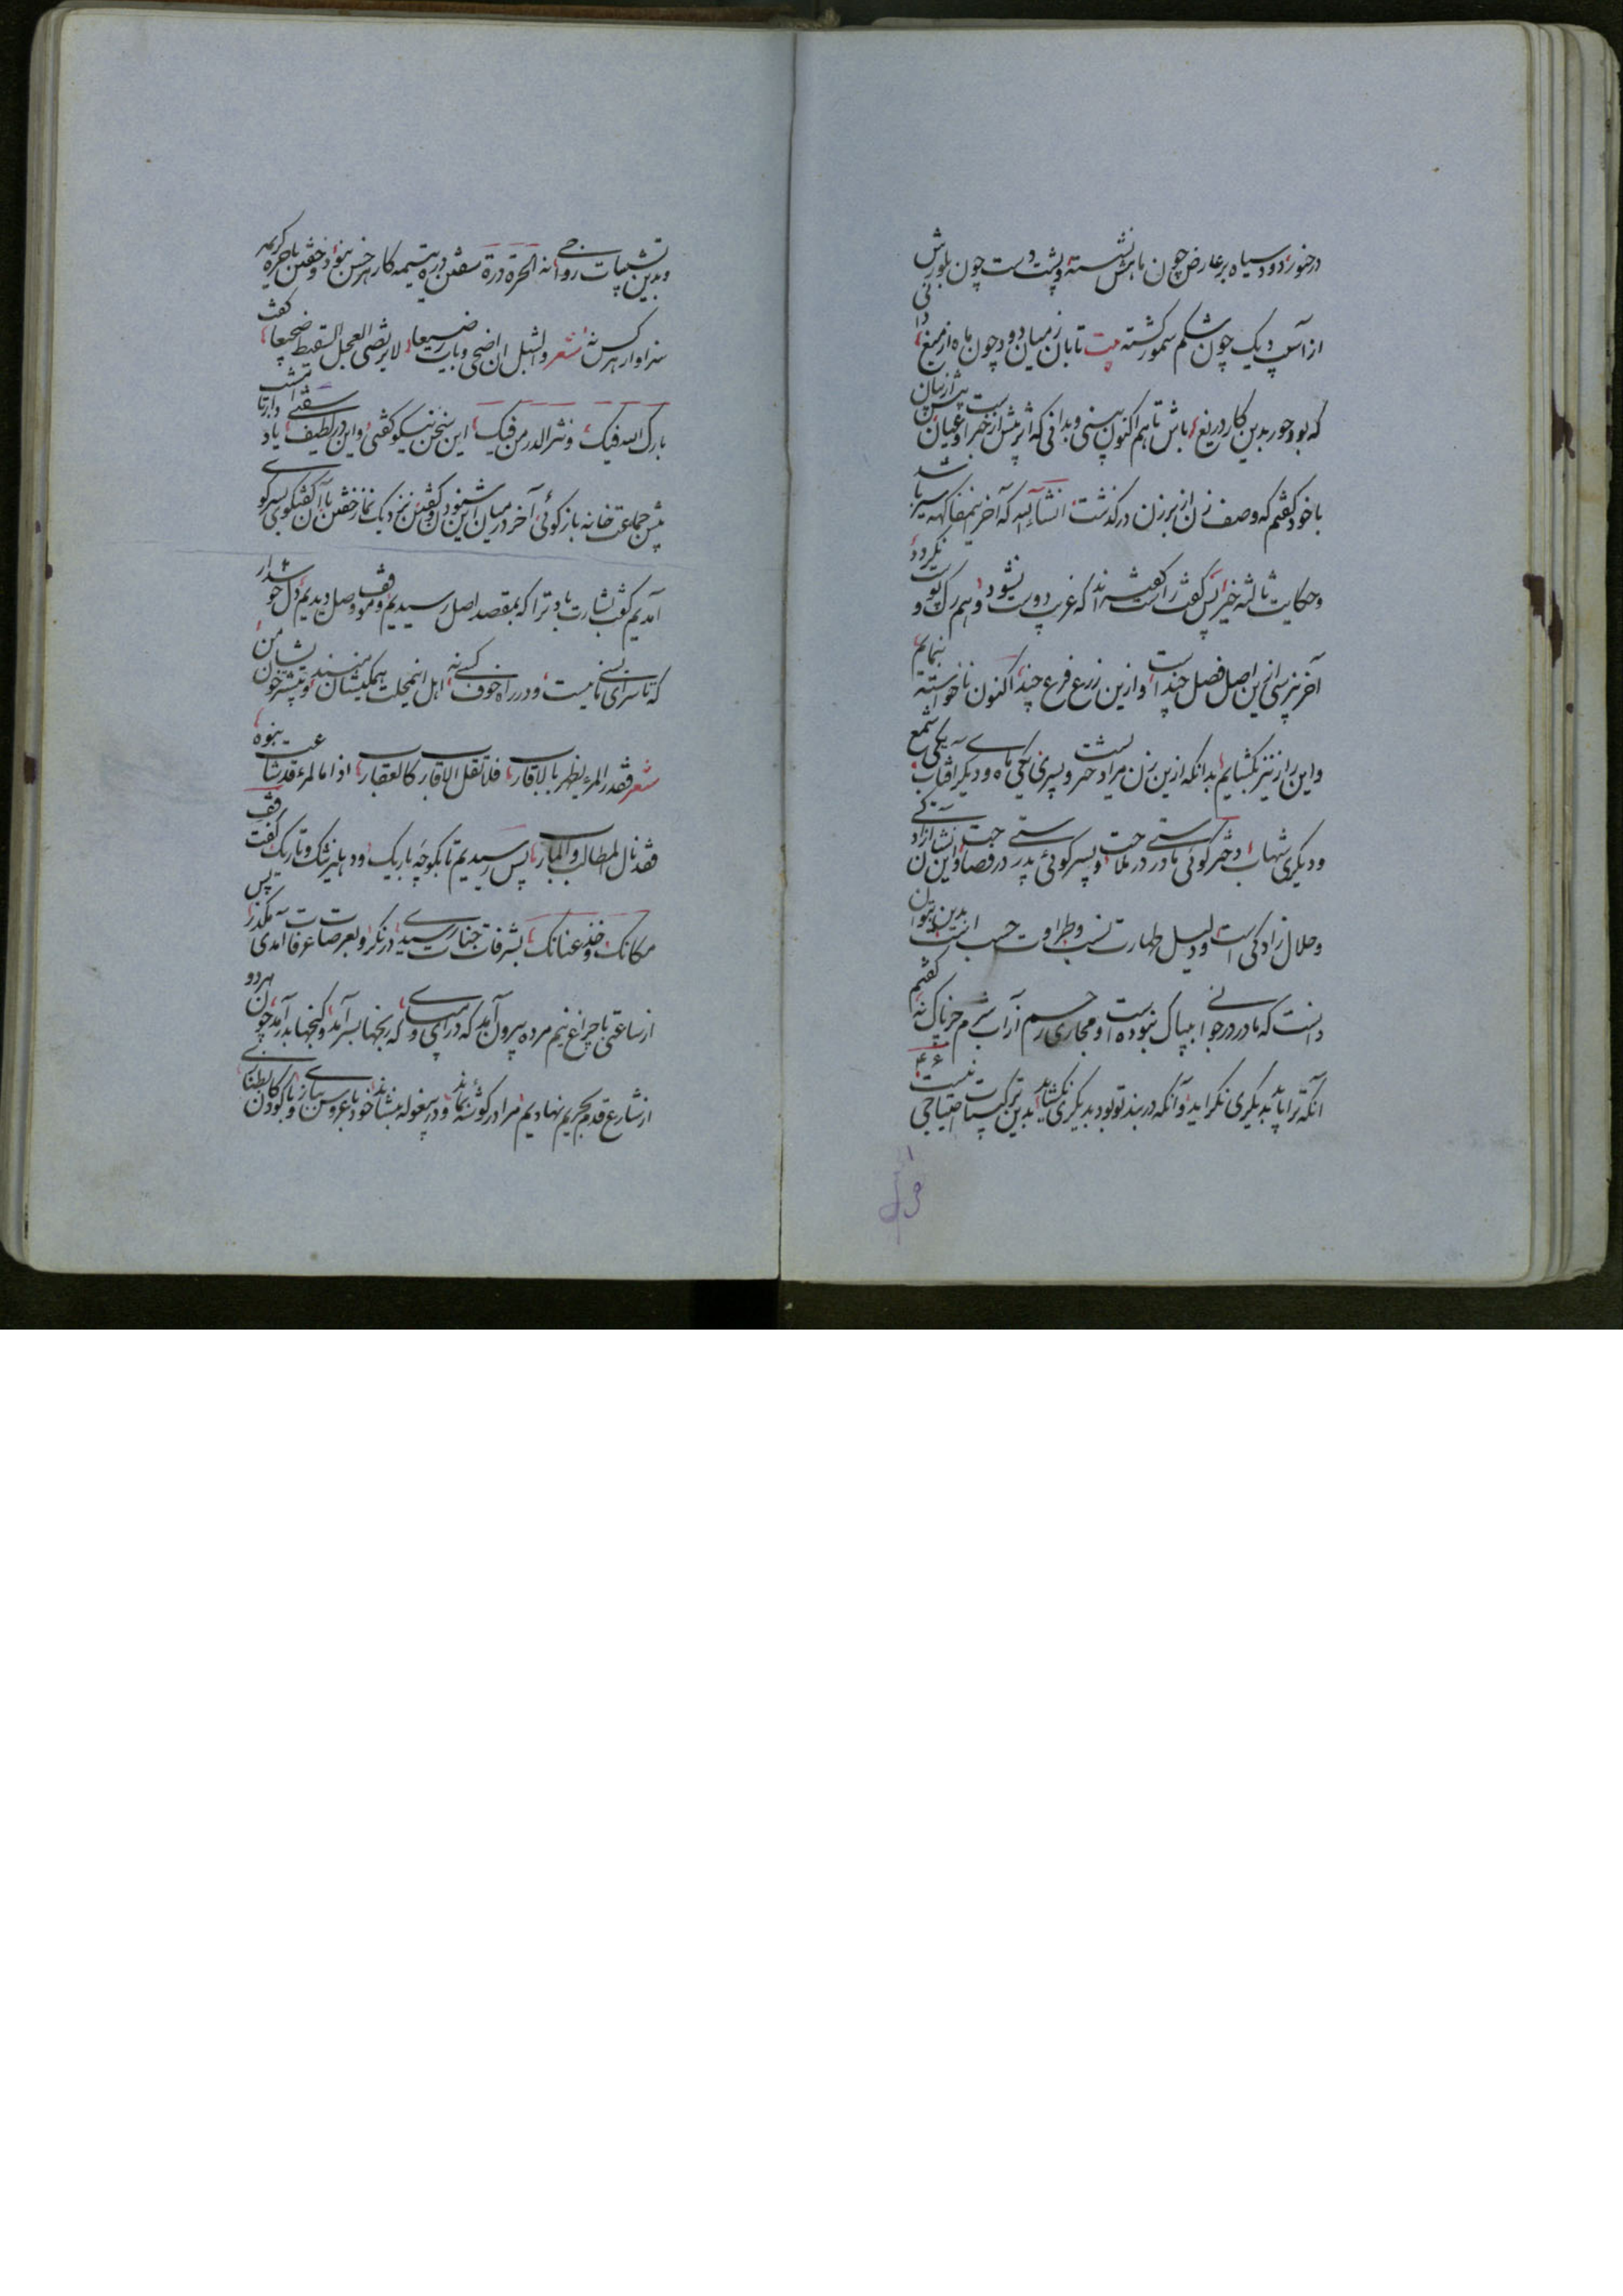 درخور، دود سیاه بر عارض چون ماهش نشسته و پشت دست چون بلورش
از آسیب دیک چون شکم سمور گشته بیت تابان ز میان دود چون ماه از میغ دانی
که بود حور بدین کار دریغ، باش تا هم اکنون ببینی و بدانی که اثرش بیش از خبر و عیان
با خود گفتم که وصف زن از برزن درگذشت انشاءالله که آخر
وحکایت ثالثه خیر پس گفت راست گفته‌اند که غریب دوست نشود و هم
آخر نپرسی ازین اصل فصل چند است وازین زرع فرع چند اکنون ناخواسته بنمایم
و این راز نیز بگشایم بدانکه ازین زن مرا دختر و پسریست یکی ماه و دیگر آفتاب یکی شمع
و دیگری شهاب دختر گوئی مادرستی در ملاحت و پسر گوئی پدرستی در فصاحت و این نشان آزادگی
و حلال زادگی است و دلیل طهارت نسب و طراوت حسب است بدین بتوان
دانست که مادر در جوانی بیباک نبوده است و مجاری رحم از آب شرم جز پاک نه گفتم
آنکه ترا باید بدیگری نگراید و آنکه در بند تو بود بدیگری نگشاید بدین ترکیبات احتیاجی نیست
وبدین تشبیبات رواجی نه الحرة درة سفتن دره یتیمه کار هر خس نبود و خفتن با حره کریمه
سزاوار هر کس نه شعر والشبل ان اضحی وبات رضیعا، لا یرتضی العجل السقیط ضجیعا، گفت
بارک الله فیک، ونثر الدر من فیک، این سخن نیکو گفتی و این در لطیف سفتی یاد دار تا
پیش جماعت خانه بازگوئی، آخر در میان این شنودن و گفتن نزدیک نماز خفتن با آن گفتگوی بسر کوی
آمدیم گفت بشارت باد ترا که بمقصد اصل رسیدیم و موقف وصل دیدیم دل خوش دار
که تا سرای بسی نیست و در راه خوف کسی نه اهل این محلت همگنان و بیشتر خون
شعر فقد المرء یظهر بالاقارب، فلا تقل الاقارب کالعقارب، اذا ما المرء قد عشا بنوه،
فقد نال المطالب والمآرب، پس رسیدیم تا بکوچه باریک و دهلیز تنگ و تاریک گفت قف
مکانک وخذ عنانک بشرفات جنات رسیدی درنگر و بعرصات عرفات آمدی مگذر، پس
از ساعتی با چراغ نیم مرده بیرون آمد که درآی و که رنجها بسر آمد و گنجها بدر آمد چون هر دو
از شارع قدم بحریم نهادیم مرا در گوشه بماند و در بیغوله بنشاند خود با عروس بازی و با کودکان